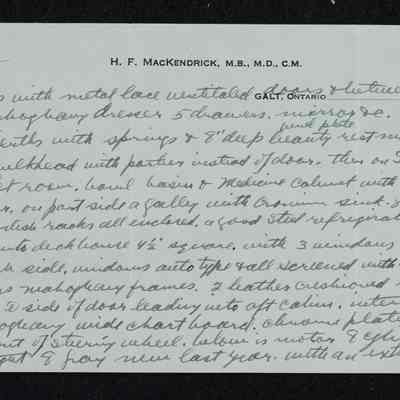 H. F. MacKENDRICK, M.B., M.D., C.M.
GALT, ONTARIO
with metal lace ventilated doors & between
mahogany dresser 5 drawers, mirror &c.
good plate
berths with springs & 8" deep beauty rest
bulkhead with portier instead of door. Then on S
room, bowl basin & Medicine Cabinet with
on port side a galley with Cronium sink.
dish racks all enclosed, a good sized refrigerat
into deck house 4½' square, with 3 windows
side, windows auto type & all screened with
mahogany frames. 2 leather cushioned
side of door leading into aft cabin. inter
mahogany wide chart board. chrome plate
front of steering wheel. below is motor
gray new last year. with an ext